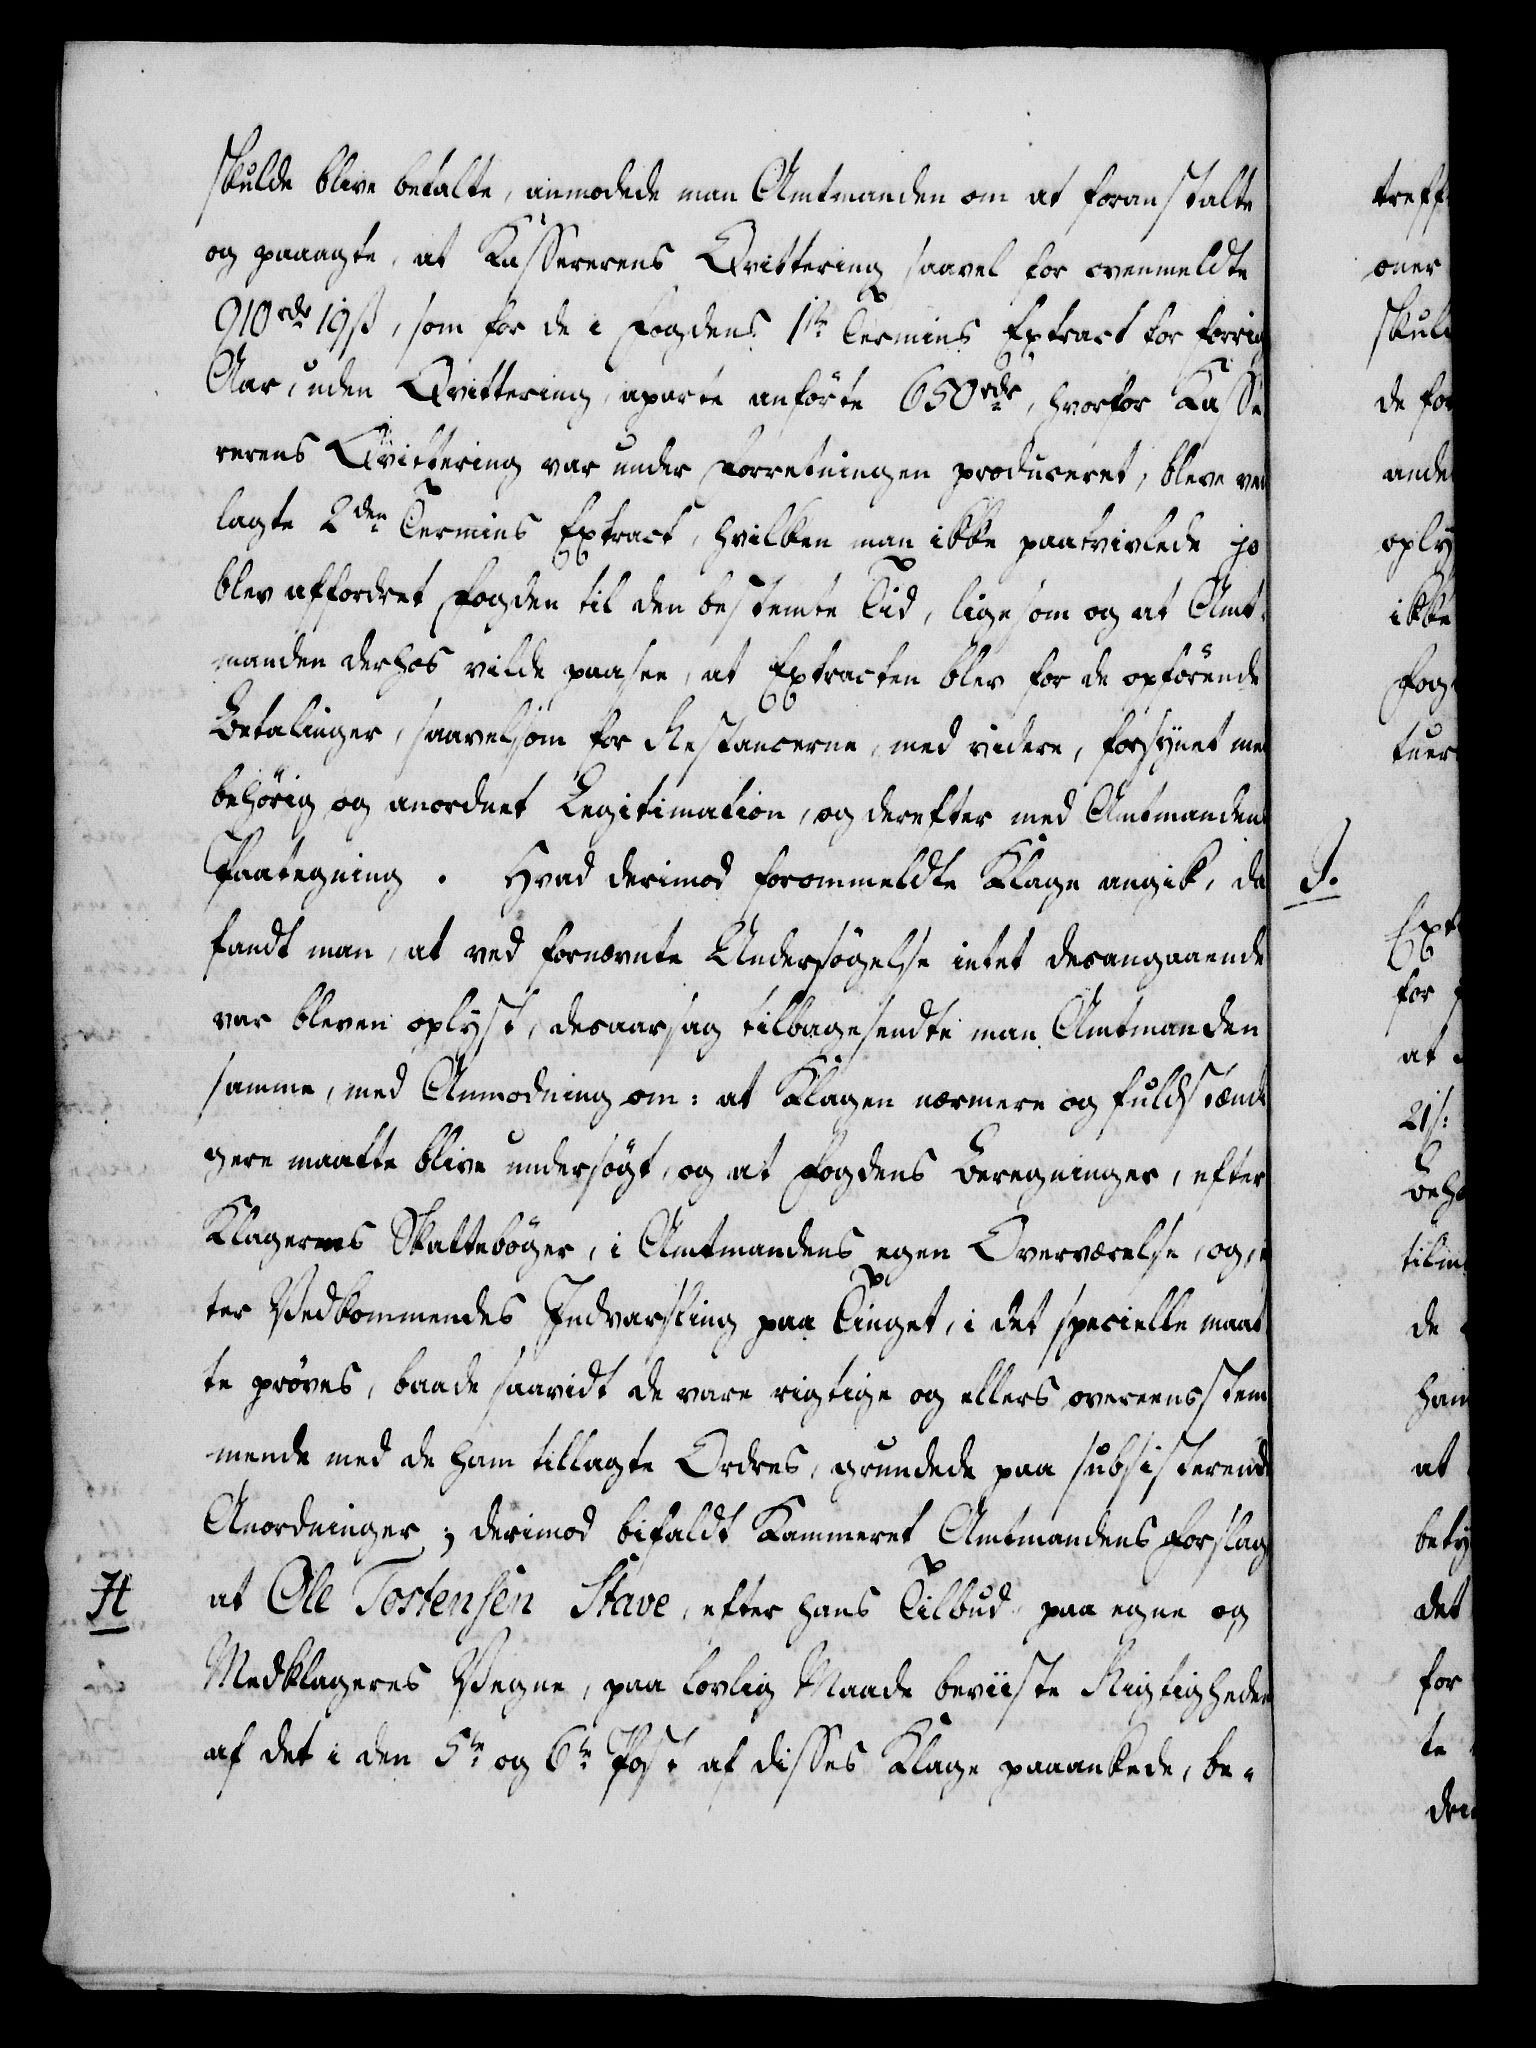 skulde blive betalte, anmodede man Amtmanden om at foranstalte
og paaagte, at Kassererens Qvittering saavel for ovenmeldte
910 rdr 19 ß, som for de i Fogdens 1ste Termins Extract for forrig
Aar, uden Qvittering, aparte anførte 650 rdr, hvorfor Kasse
rerens Qvittering var under Forretningen produceret, bleve ved
lagte 2den Termins Extract, hvilken man ikke paatvivlede jo
blev affordret Fogden til den bestemte Tid, ligesom og at Amt-
manden derhos vilde paasee, at Extracten blev for de opførende
Betalinger, saavelsom for Restancerne, med videre, forsynet med
behörig og anordnet Legitimation, og derefter med Amtmandens
Paategning. Hvad derimod forommeldte Klage angik, da
fandt man, at ved fornævnte Undersögelse intet desangaaende
var bleven oplyst, desaarsag tilbagesendte man Amtmanden
samme, med Anmodning om: at Klagen nærmere og fuldstændi
gere maatte blive undersögt, og at Fogdens Beregninger, efter
Klagernes Skattebøger, i Amtmandens egen Overværelse, og, ef
ter Vedkommendes Indvarsling paa Tinget, i det specielle maat
te prøves, baade saavidt de vare rigtige og ellers overeensstem
mende med de ham tillagte Ordres, grundede paa subsisterende
Anordninger; derimod bifaldt Kammeret Amtmandens Forslag
H at Ole Tostensen Stave, efter hans Tilbud, paa egne og
Medklageres Vegne, paa lovlig Maade beviiste Rigtigheden
af det i den 5te og 6te Post af disses Klage paaankede, be-
treff
oner
skuld
de for
ande
oply
ikke
Fog
tuer
I.
Ext
for
at
21 ß:
Beho
tilm
de
ham
at
bety
det
for
te